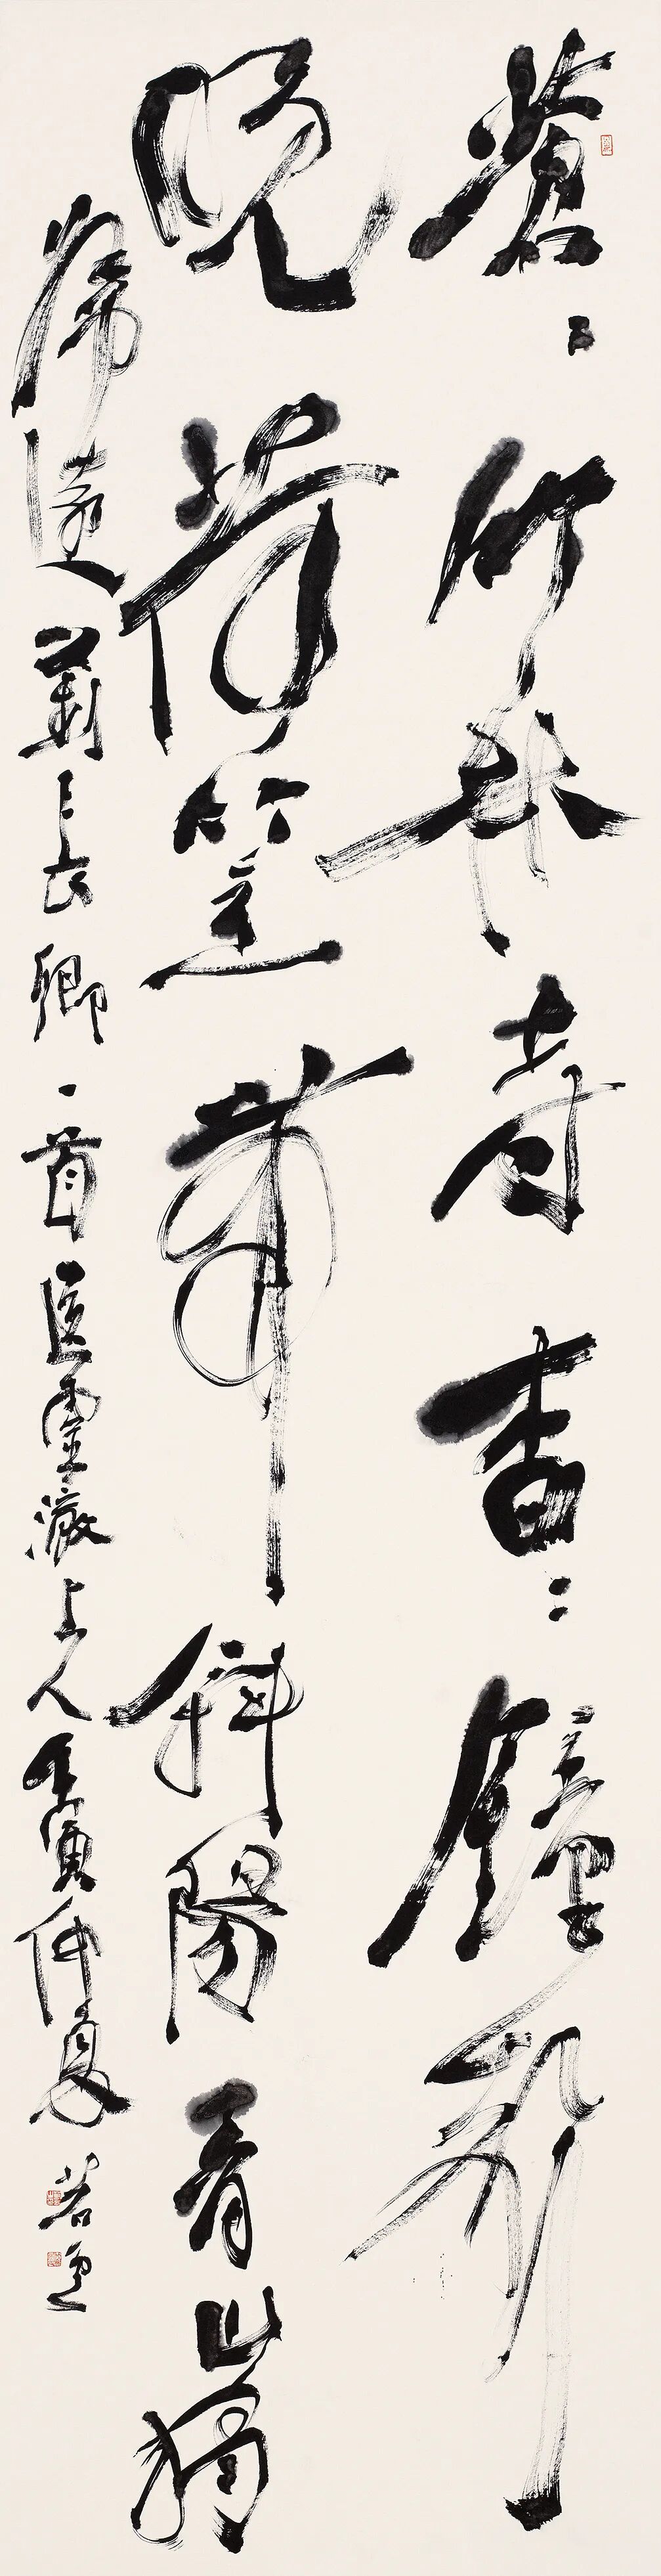 蒼々竹林寺杳々鐘聲
晚荷笠帶斜陽青山獨
歸遠 劉長卿一首送靈澈上人 壬寅仲夏 若逸